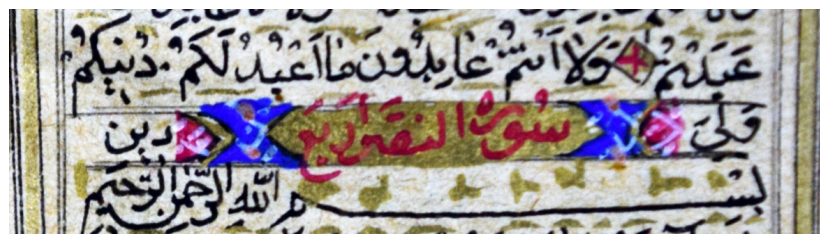 عَبَدْتُمْ وَلَا أَنْتُمْ عَابِدُونَ مَا أَعْبُدُ لَكُمْ دِينُكُمْ
وَلِيَ سورة النصر اربع دين
بِسْمِ اللَّهِ الرَّحْمَنِ الرَّحِيمِ